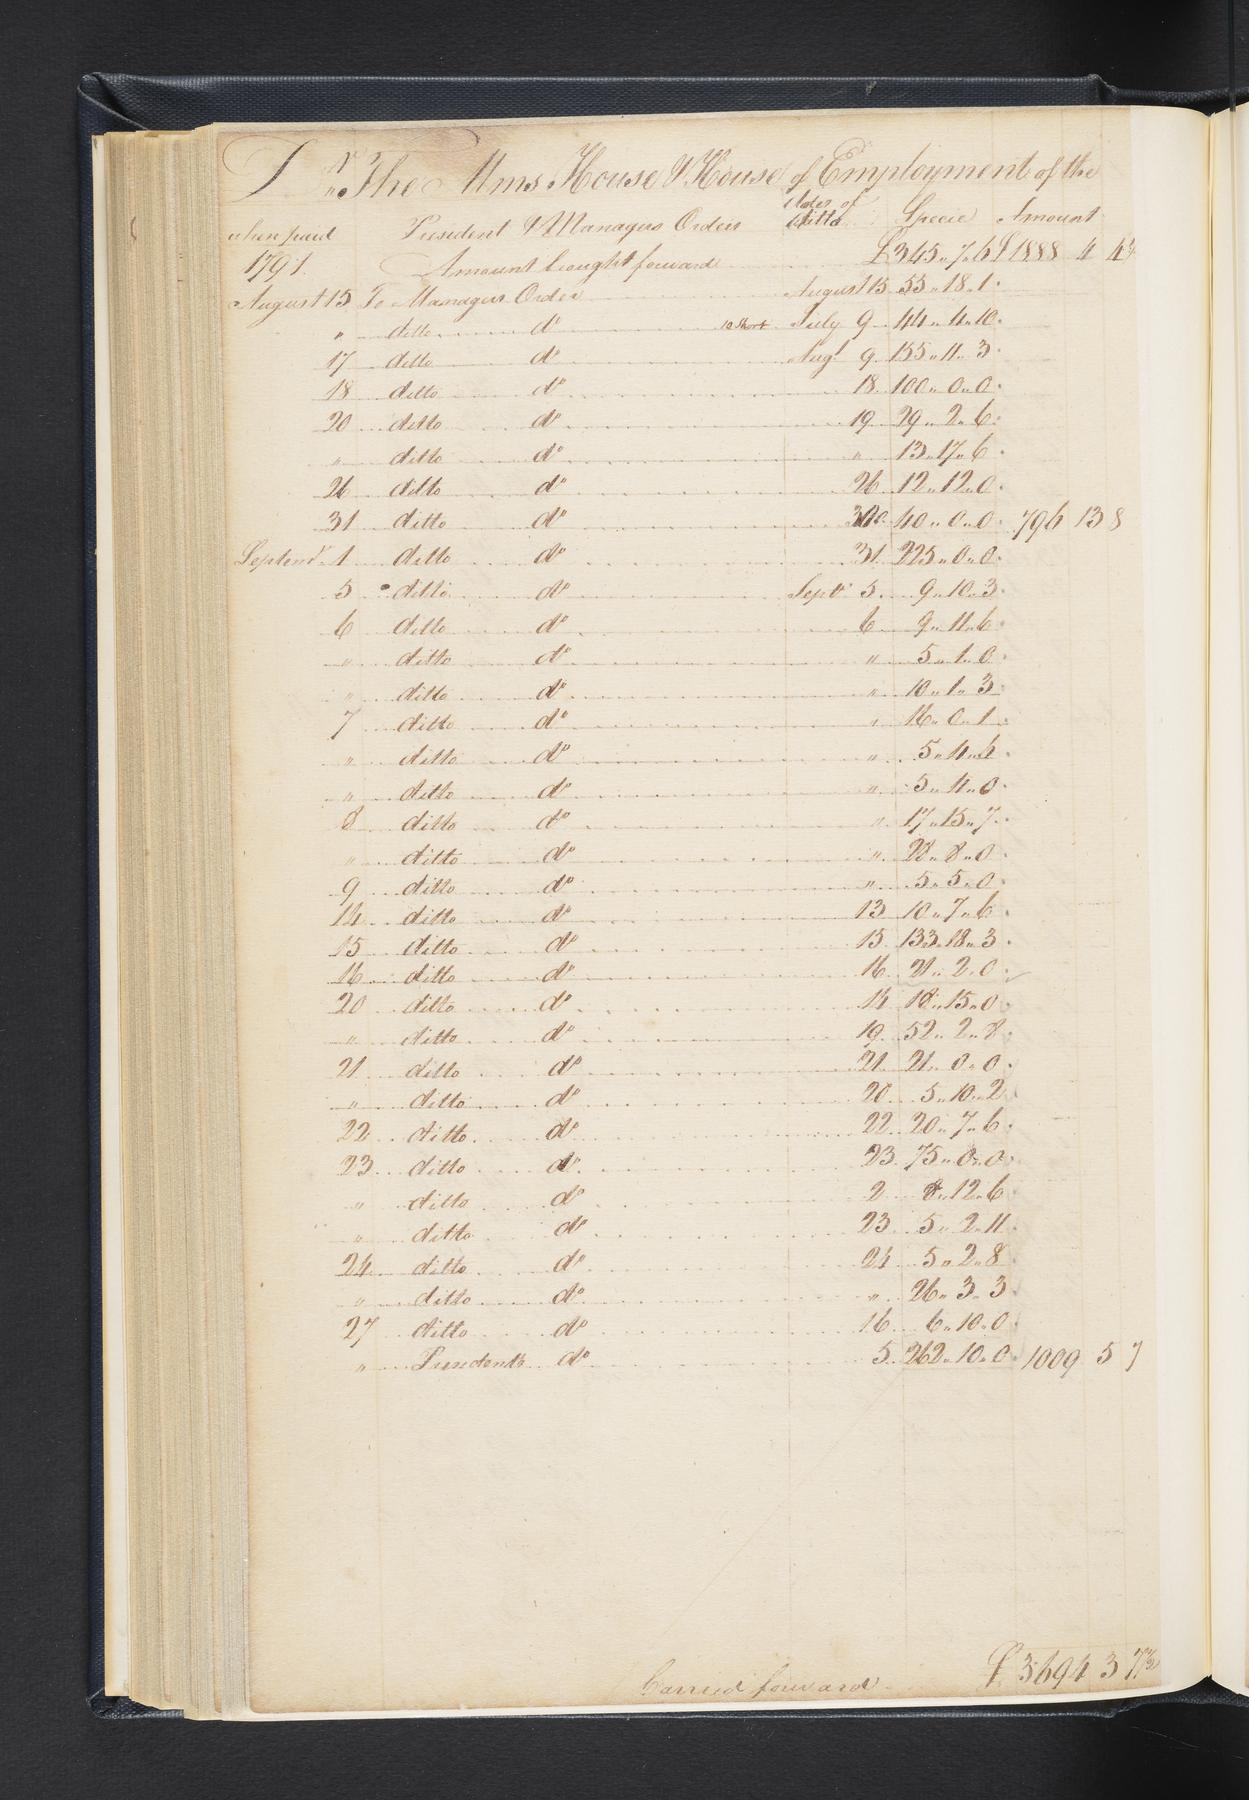 Dr. The Alms House & House of Employment of the
when paid President & Managers Orders dates of ditto Specie Amount
1791 Amount brought forward £345..7..6 £1888 4 4½
August 15 To Managers Order August 15 55..18..1
" ditto do July 9 44..4..10
17 ditto do Augt 9 155..11..3
18 ditto do 18 100..0..0
20 ditto do 19 29..2..6
" ditto do " 13..17..6
26 ditto do 26 12..12..0
31 ditto do 40..0..0 796 13 8
Septemr 1 ditto do 31 225..0..0
5 ditto do Septr 5 9..10..3
6 ditto do 6 9..11..6
" ditto do " 5..1..0
" ditto do " 10..1..3
7 ditto do " 16..0..1
" ditto do " 5..4..6
" ditto do " 5..4..0
8 ditto do " 17..15..7
" ditto do " 28..8..0
9 ditto do " 5..5..0
14 ditto do 13 10..7..6
15 ditto do 15 133..18..3
16 ditto do 16 21..2..0
20 ditto do 14 18..15..0
" ditto do 19 52..2..8
21 ditto do 21 21..0..0
" ditto do 20 5..10..2
22 ditto do 22 20..7..6
23 ditto do 23 75..0..0
" ditto do 2 8..12..6
" ditto do 23 5..2..11
24 ditto do 24 5..2..8
" ditto do " 26..3..3
27 ditto do 16 6..10..0
" Presidents do 5 262..10..0 1009 5 7
Carried forward £3694 3 7½